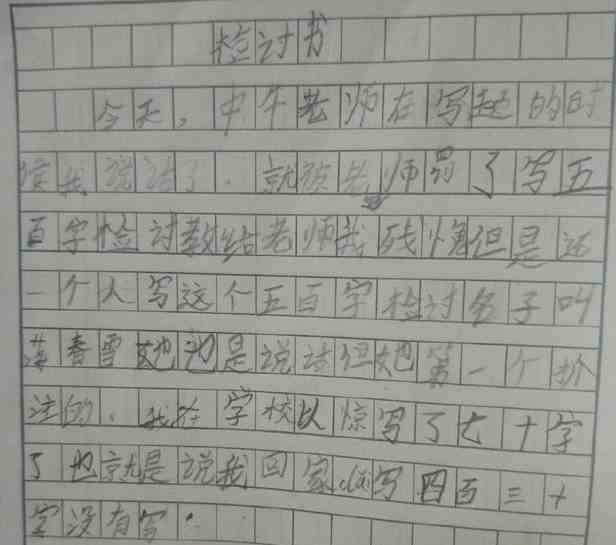 检讨书
今天,中午老师在写题的时
候我说话了.就被老师罚了写五
百字检讨教给老师我残悔但是还
一个人写这个五百字检讨名子叫
春雪她也是说话但她第一个
注的.我在学校以惊写了七十字
了也就是说我回家写四百三十
字没有写.